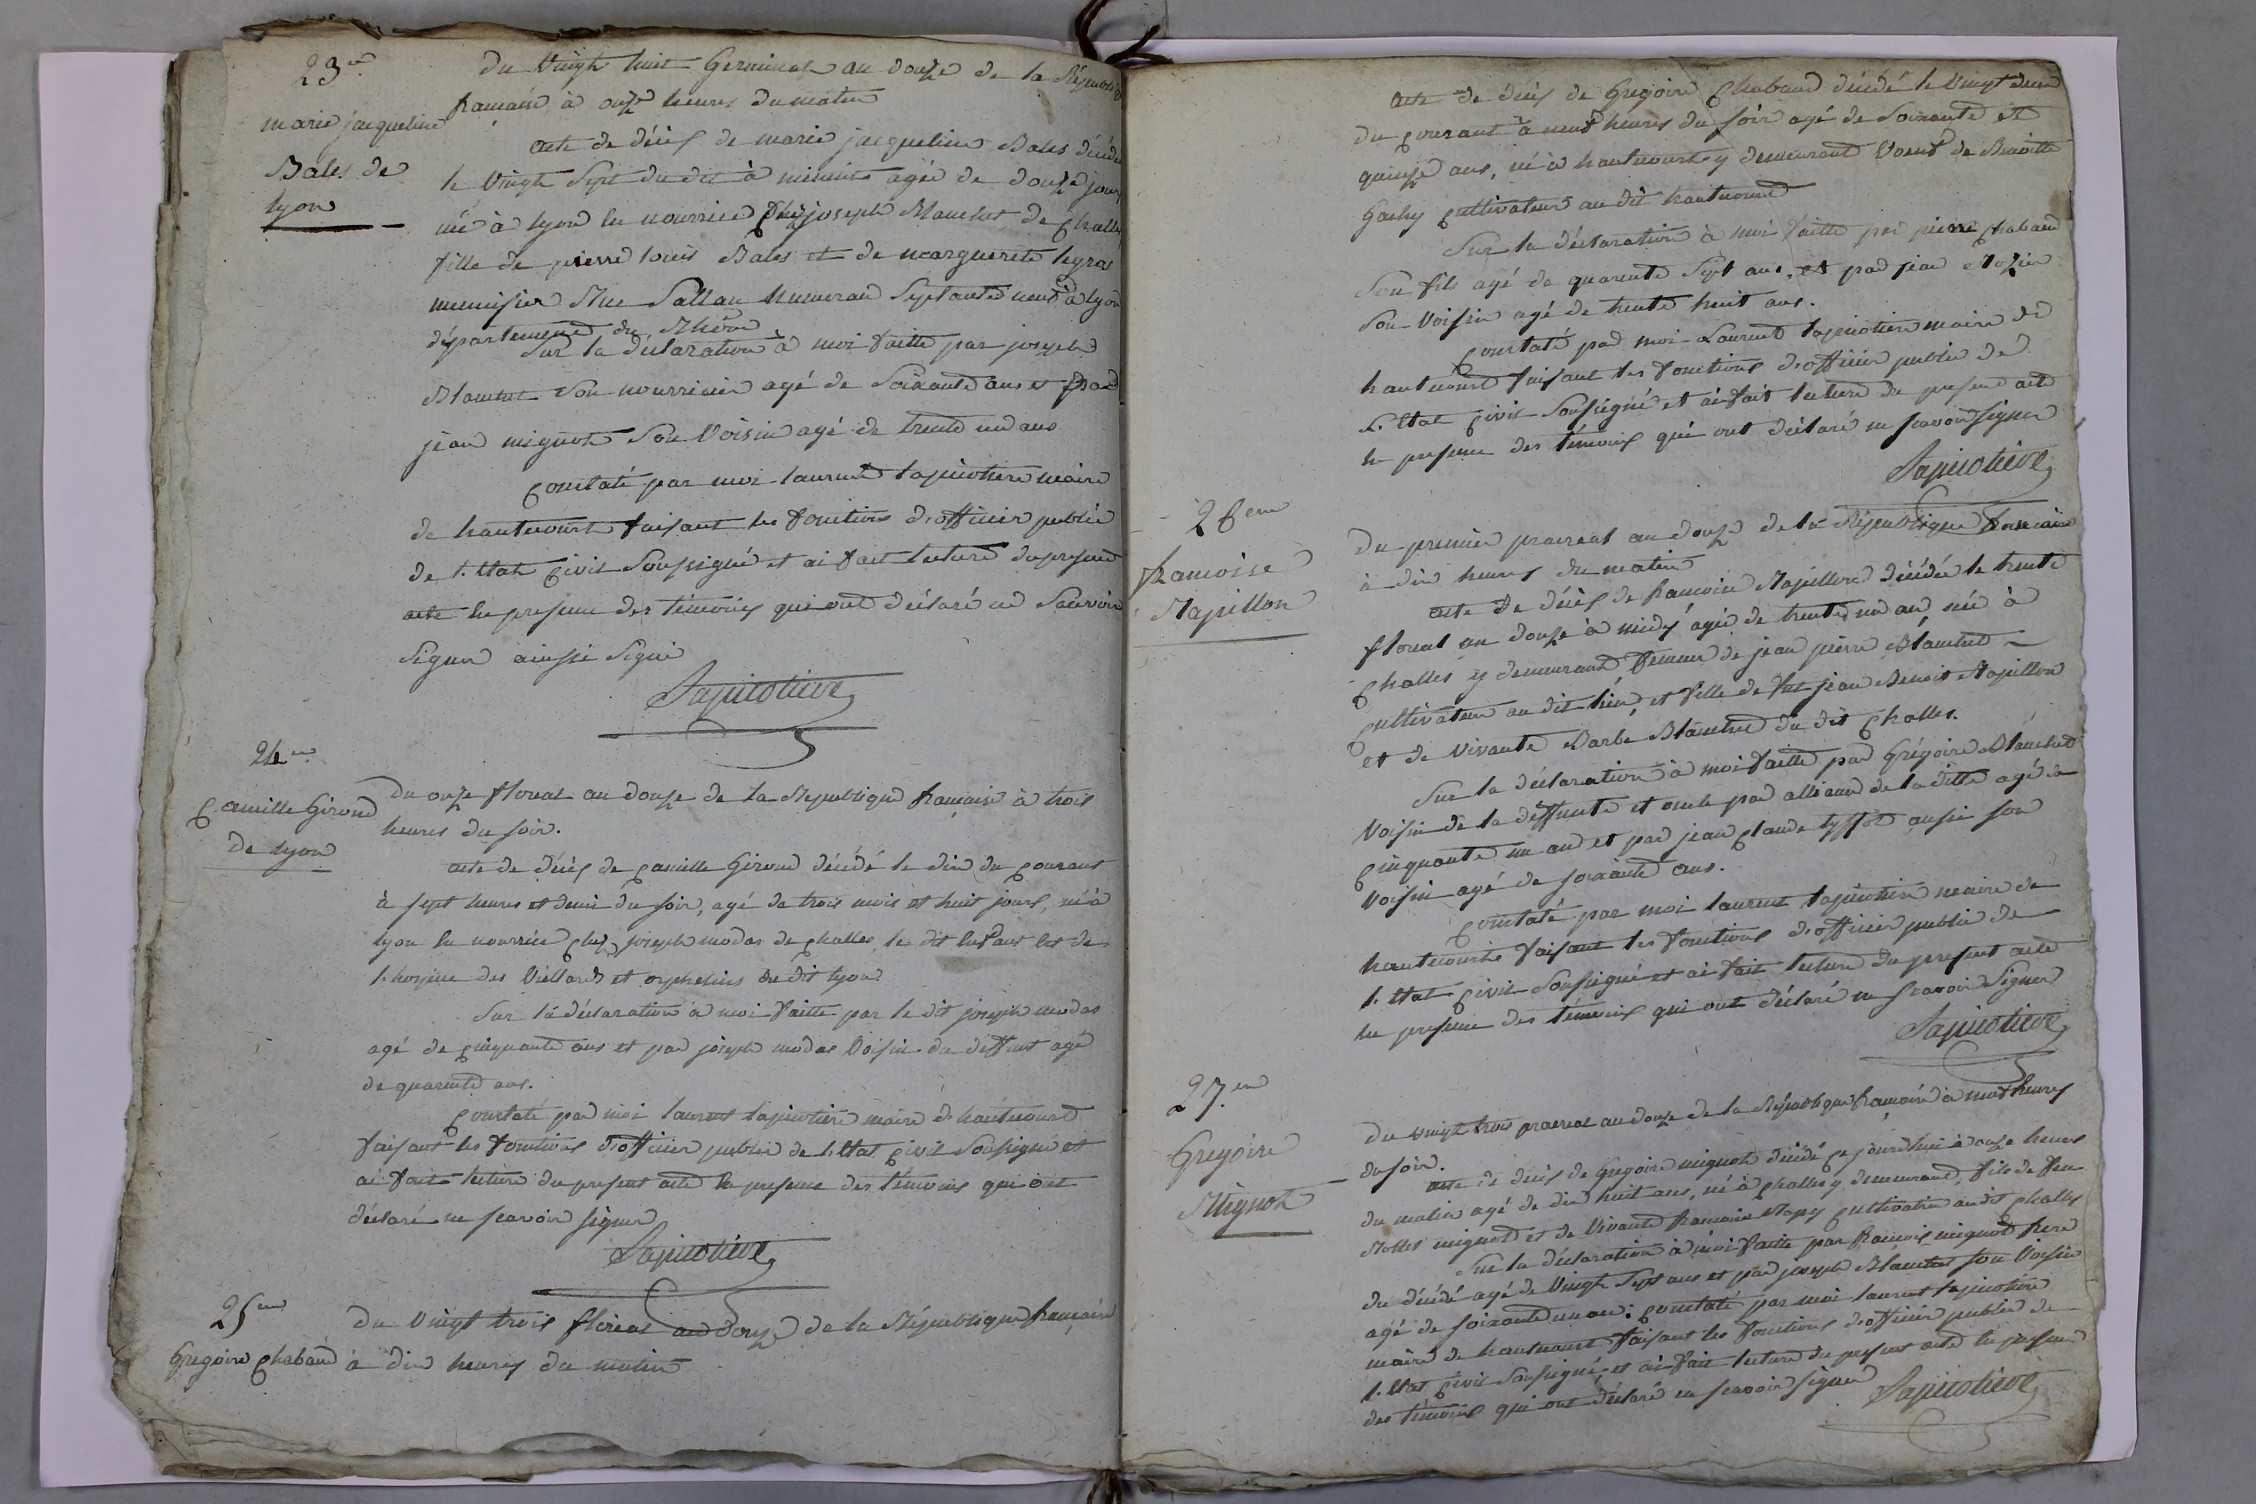 23eme
marie jacqueline
Bales de
lyon
du Vingt huit Germinal an douze de la Republi
francaise à onze heures du matin
acte de décès de marie jacqueline Bales décédé
le Vingt Sept du dit à minuit agée de douze jours
née à lyon en nourrice chez joseph Blanchet de Challes
fille de pierre louis Bales et de marguerete legras
menuisier Rue numerau Septante neuf à lyon
département du Rhône
Sur la déclaration à moi faitte par joseph
Blanchet son nourricier agé de Soixante ans et par
jean mignot Son Voisin agé de trente un ans
Constaté par moi laurent lapicotiere maire
de hautecourt faisant les fonctions d'officier public
de l'Etat Civil Soussigné et ai fait lecture du present
acte en presence des témoins qui ont déclaré ne Scavoir
Signer ainsi Signé
Lapicotiere
24eme
Camille Giroud
de lyon
du onze floreal an douze de la Republique francaise à trois
heures du soir.
acte de décès de Camille Giroud décédé le dix du Courant
à sept heures et demi du soir, agé de trois mois et huit jours, né à
lyon en nourrice chez joseph modas de Challes, le dit enfant est de
l'hospice des Viellards et orphelins du dit lyon
Sur la déclaration à moi faitte par le dit joseph modas
agé de Cinquante ans et par joseph modas Voisin du deffunt agé
de quarente ans.
Constaté par moi laurent lapicotiere maire de hautecourt
faisant les fonctions d'officier public de l'Etat Civil Soussigné et
ai fait lecture du present acte en presence des témoins qui ont
déclaré ne scavoir signer
Lapicotiere
25eme
Gregoire Chabaud
du Vingt trois floreal an douze de la République française
à dix heures du matin
acte de décès de Gregoire Chabaud décédé le Vingt deux
du Courant à neuf heures du soir agé de Soixante et
quinze ans, né à hautecourt y demeurant Voeuf de Benoitte
Gachy Cultivateur au dit hautecourt
Sur la déclaration à moi faitte par pierre Chabaud
Son fils agé de quarente Sept ans, et par jean
Son Voisin agé de trente huit ans.
Constaté par moi Laurent lapicotiere maire de
hautecourt faisant les fonctions d'officier public de
L'Etat Civil Soussigné et ai fait lecture du present acte
en presence des témoins qui ont déclaré ne scavoir signer
Lapicotiere
26eme
francoise
Rapillon
du premier prairial an douze de la République francaise
à dix heures du matin
acte de décès de francoise Rapillon décédée le trente
floreal an douze à midy agée de trente un an née à
Challes y demeurant femme de jean pierre Blanchet
Cultivateur au dit lieu, et fille de fut jean Benoit Rapillon
et de Vivante Barbe Blanchet du dit Challes.
Sur la déclaration à moi faitte par Grégoire Blanchet
Voisin de la deffunte et oncle par alliance de la ditte agé de
Cinquante un an et par jean Claude tyssot aussi son
Voisin agé de soixante ans.
Constaté par moi laurent lapicotiere maire de
hautecourt faisant les fonctions d'officier public de
l'Etat Civil Soussigné et ai fait lecture du present acte
en presence des témoins qui ont déclaré ne scavoir Signer
Lapicotiere
27eme
Gregoire
Mignot
du vingt trois prairial an douze de la République francaise à neuf heures
du soir.
acte de decès de Gregoire mignot décédé Ce jourdhui à onze heures
du matin agé de dix huit ans, né à Challes y demeurant, fils de feu
mignot et de Vivante francoise Cultivatrice au dit Challes
Sur la déclaration à moi faitte par francois mignot frere
du décédé agé de Vingt Sept ans et par joseph Blanchet son Voisin
agé de soixante un an; Constaté par moi laurent lapicotiere
maire de hautecourt faisant les fonctions d'officier public de
l'Etat Civil Soussigné, et ai fait lecture du present acte en presence
des témoins qui ont déclaré ne scavoir signer
Lapicotiere